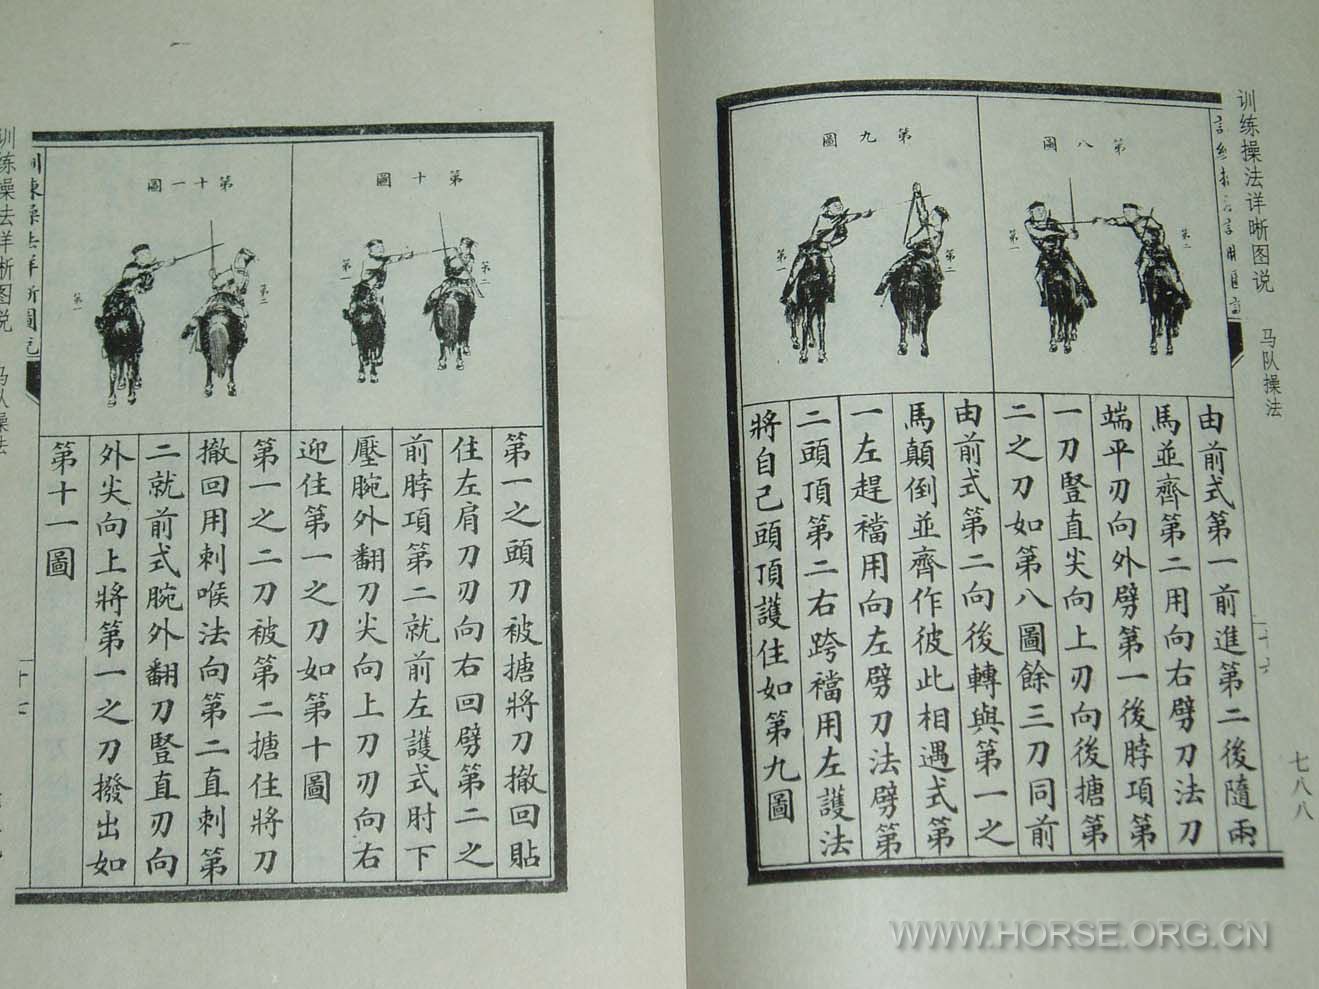 训练操法详晰图说
马队操法
七八八
第八圖
第一
第二
第九圖
第一
第二
由前式第一前進第二後隨兩
馬並齊第二用向右劈刀法刀
端平刃向外劈第一後脖項第
一刀豎直尖向上刃向後搪第
二之刀如第八圖餘三刀同前
由前式第二向後轉與第一之
馬顛倒並齊作彼此相遇式第
一左趕襠用向左劈刀法劈第
二頭頂第二右跨襠用左護法
將自己頭頂護住如第九圖
第十圖
第一
第二
第十一圖
第一
第二
第一之頭刀被搪將刀撤回貼
住左肩刀刃向右回劈第二之
前脖項第二就前左護式肘下
壓腕外翻刀尖向上刀刃向右
迎住第一之刀如第十圖
第一之二刀被第二搪住將刀
撤回用刺喉法向第二直刺第
二就前式腕外翻刀豎直刃向
外尖向上將第一之刀撥出如
第十一圖
训练操法详晰图说
马队操法
WWW.HORSE.ORG.CN